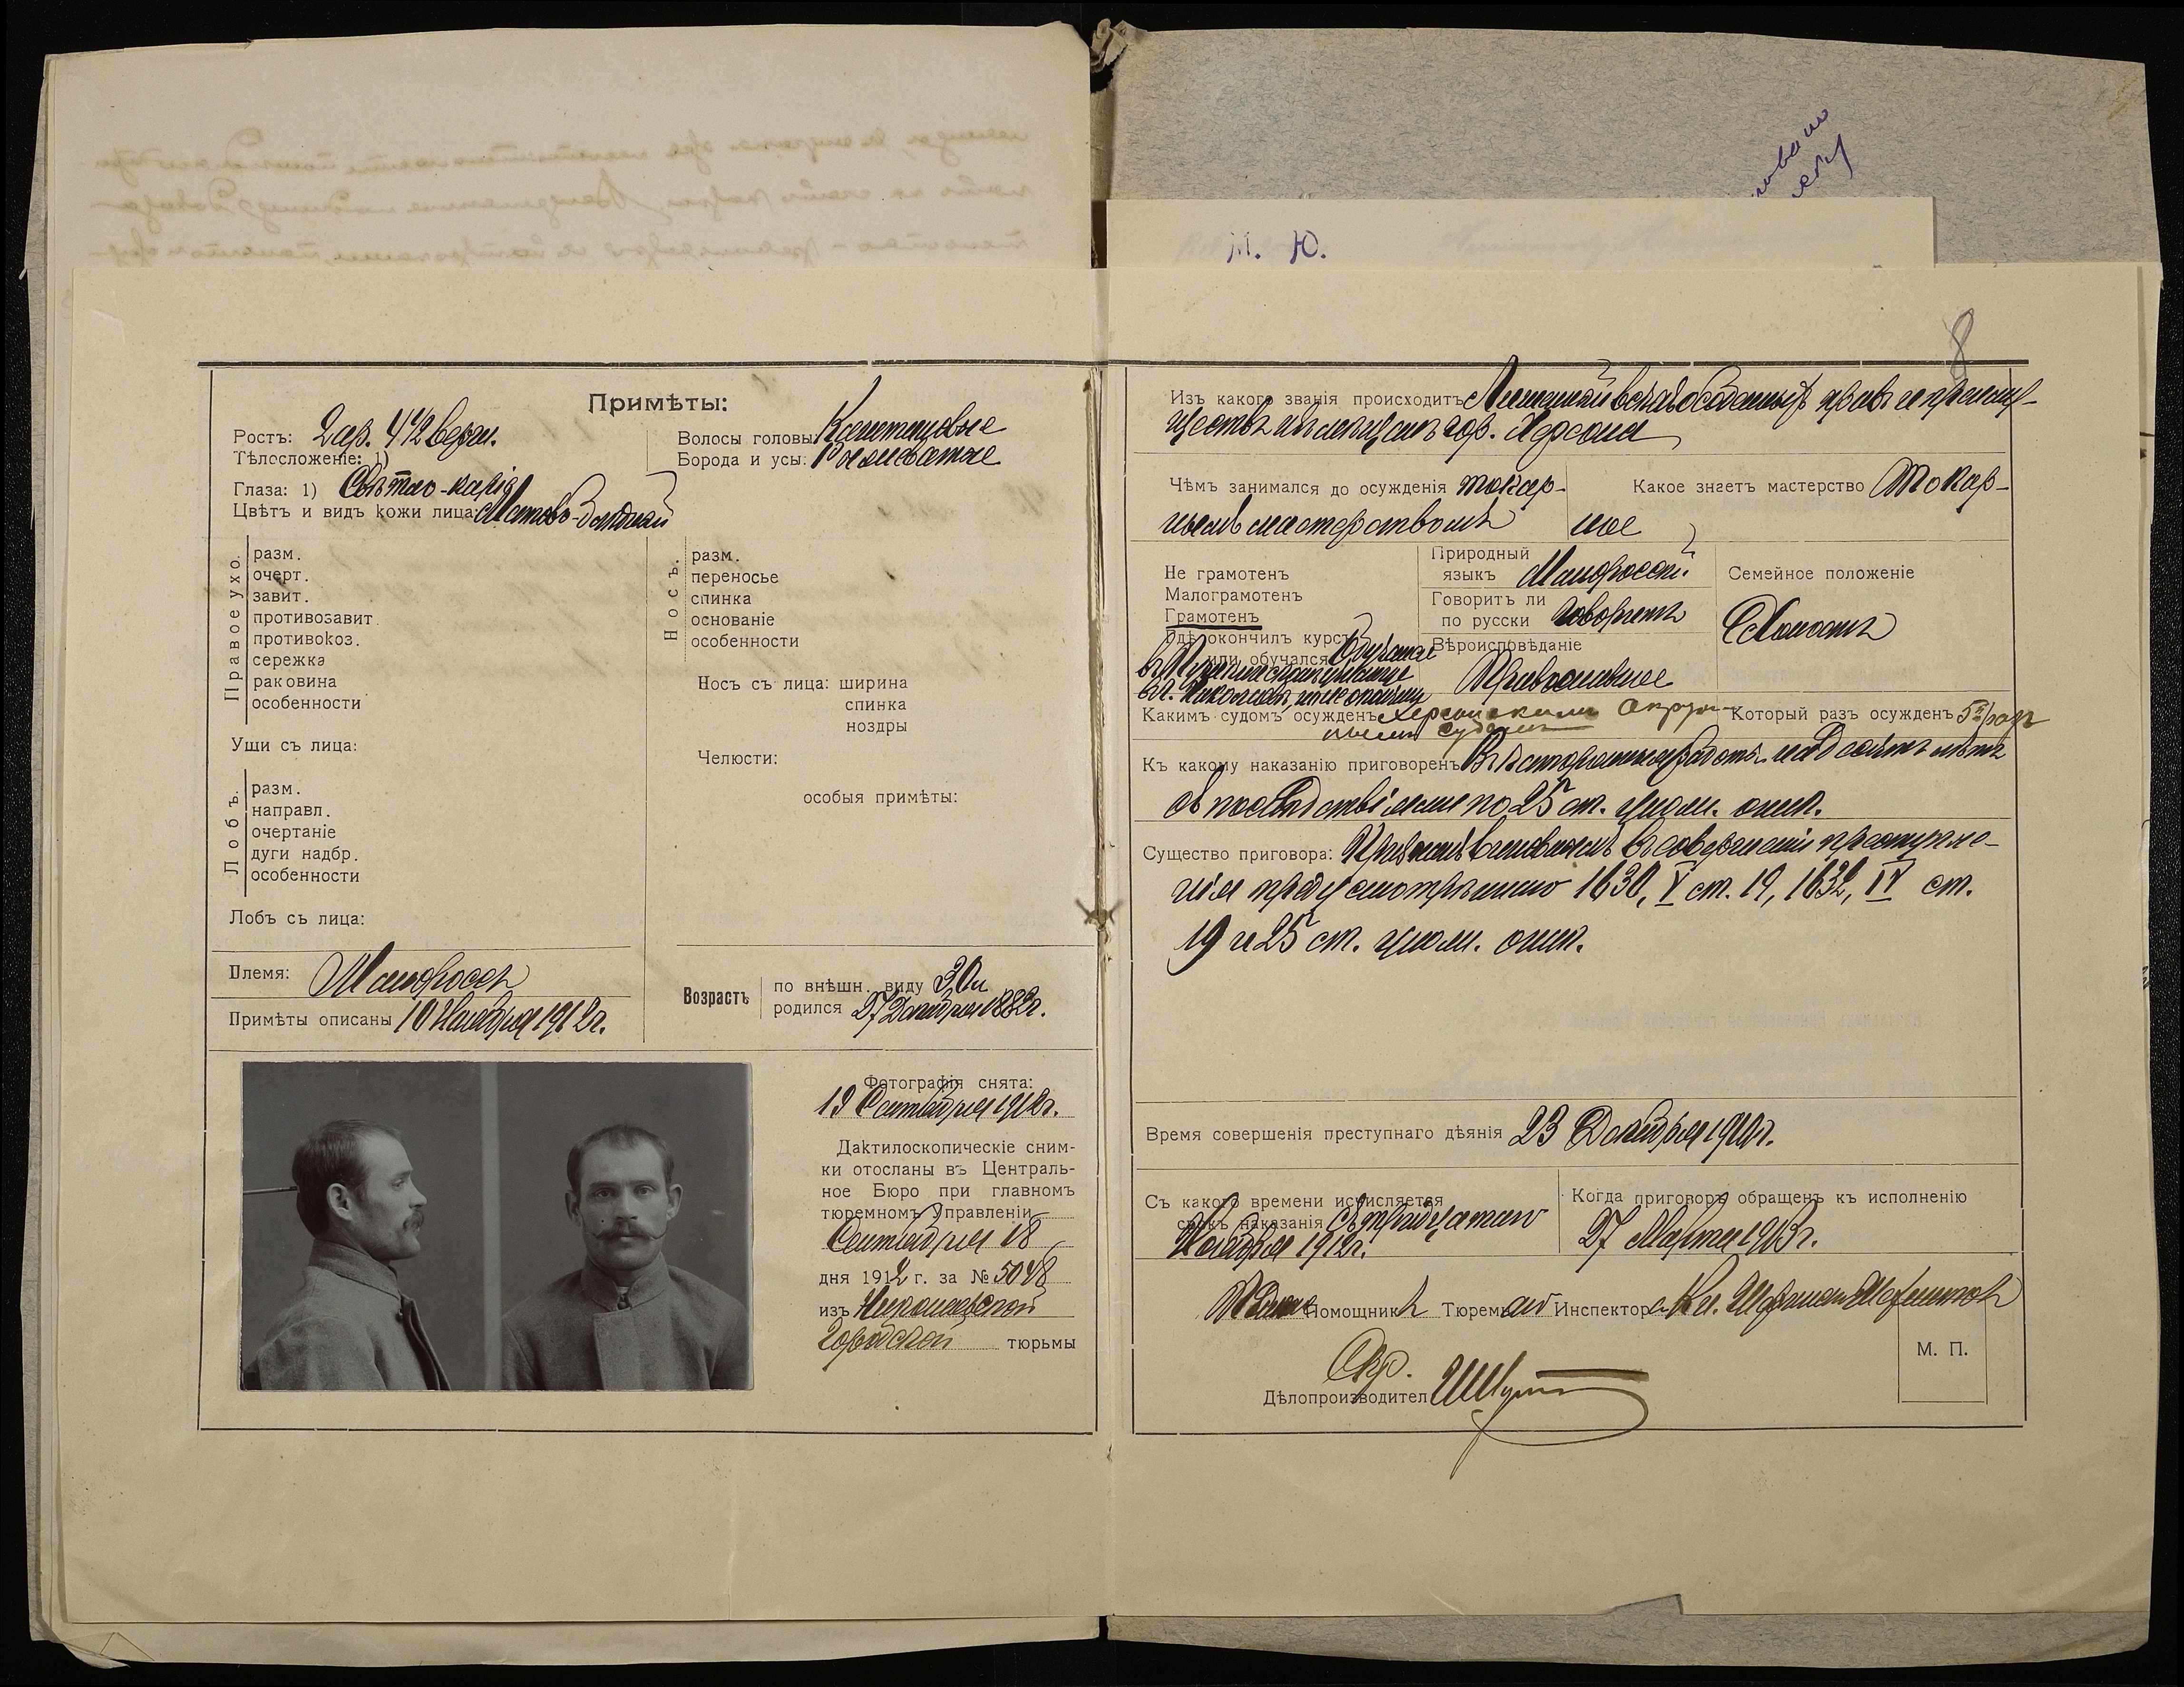 М. Ю.
8
Примѣты:
Ростъ: 2 ар. 4 1/2 верш.
Тѣлосложеніе: 1)
Глаза: 1) Свѣтло-каріе
Цвѣтъ и видъ кожи лица: Матово-блѣдный
Волосы головы: Каштановые
Борода и усы:
Правое ухо.
разм.
очерт.
завит.
противозавит.
противокоз.
сережка
раковина
особенности
Носъ.
разм.
переносье
спинка
основаніе
особенности
Уши съ лица:
Носъ съ лица: ширина
спинка
ноздры
Челюсти:
особыя примѣты:
Лобъ.
разм.
направл.
очертаніе
дуги надбр.
особенности
Лобъ съ лица:
Племя: Малороссъ
Примѣты описаны 10 Ноября 1912 г.
Возрастъ
по внѣшн. виду 30 л
родился 27 Декабря 1882 г.
Фотографія снята:
19 Сентября 1912 г.
Дактилоскопическіе сним-
ки отосланы въ Централь-
ное Бюро при главномъ
тюремномъ Управленіи
Сентября 18
дня 1912 г. за № 5048
изъ Николаевской
Городской тюрьмы
Изъ какого званія происходитъ Лишенный всѣхъ особенныхъ правъ и преиму-
ществъ изъ мѣщанъ гор. Херсона
Чѣмъ занимался до осужденія токар-
нымъ мастерствомъ
Какое знаетъ мастерство Токар-
ное
Не грамотенъ
Малограмотенъ
Грамотенъ
Гдѣ окончилъ курсъ
или обучался
въ г. Николаевѣ, не окончилъ
Природный
языкъ Малоросскій
Говоритъ ли
по русски Говоритъ
Вѣроисповѣданіе
Православное
Семейное положеніе
Холостъ
Какимъ судомъ осужденъ Херсонскимъ Окруж-
нымъ Судомъ
Который разъ осужденъ 5й разъ
Къ какому наказанію приговоренъ Въ каторжныя работы на десять лѣтъ
съ послѣдствіями по 25 ст. улож. о нак.
Существо приговора: Признанъ виновнымъ въ совершеніи преступле-
нія предусмотрѣннаго 1630, V ст. 19, 1632, IV ст.
19 и 25 ст. улож. о нак.
Время совершенія преступнаго дѣянія 23 Декабря 1910 г.
Съ какого времени исчисляется
срокъ наказанія Съ тридцатаго
Ноября 1912 г.
Когда приговоръ обращенъ къ исполненію
27 Марта 1913 г.
Помощникъ Тюремнаго Инспектора
М. П.
Дѣлопроизводител